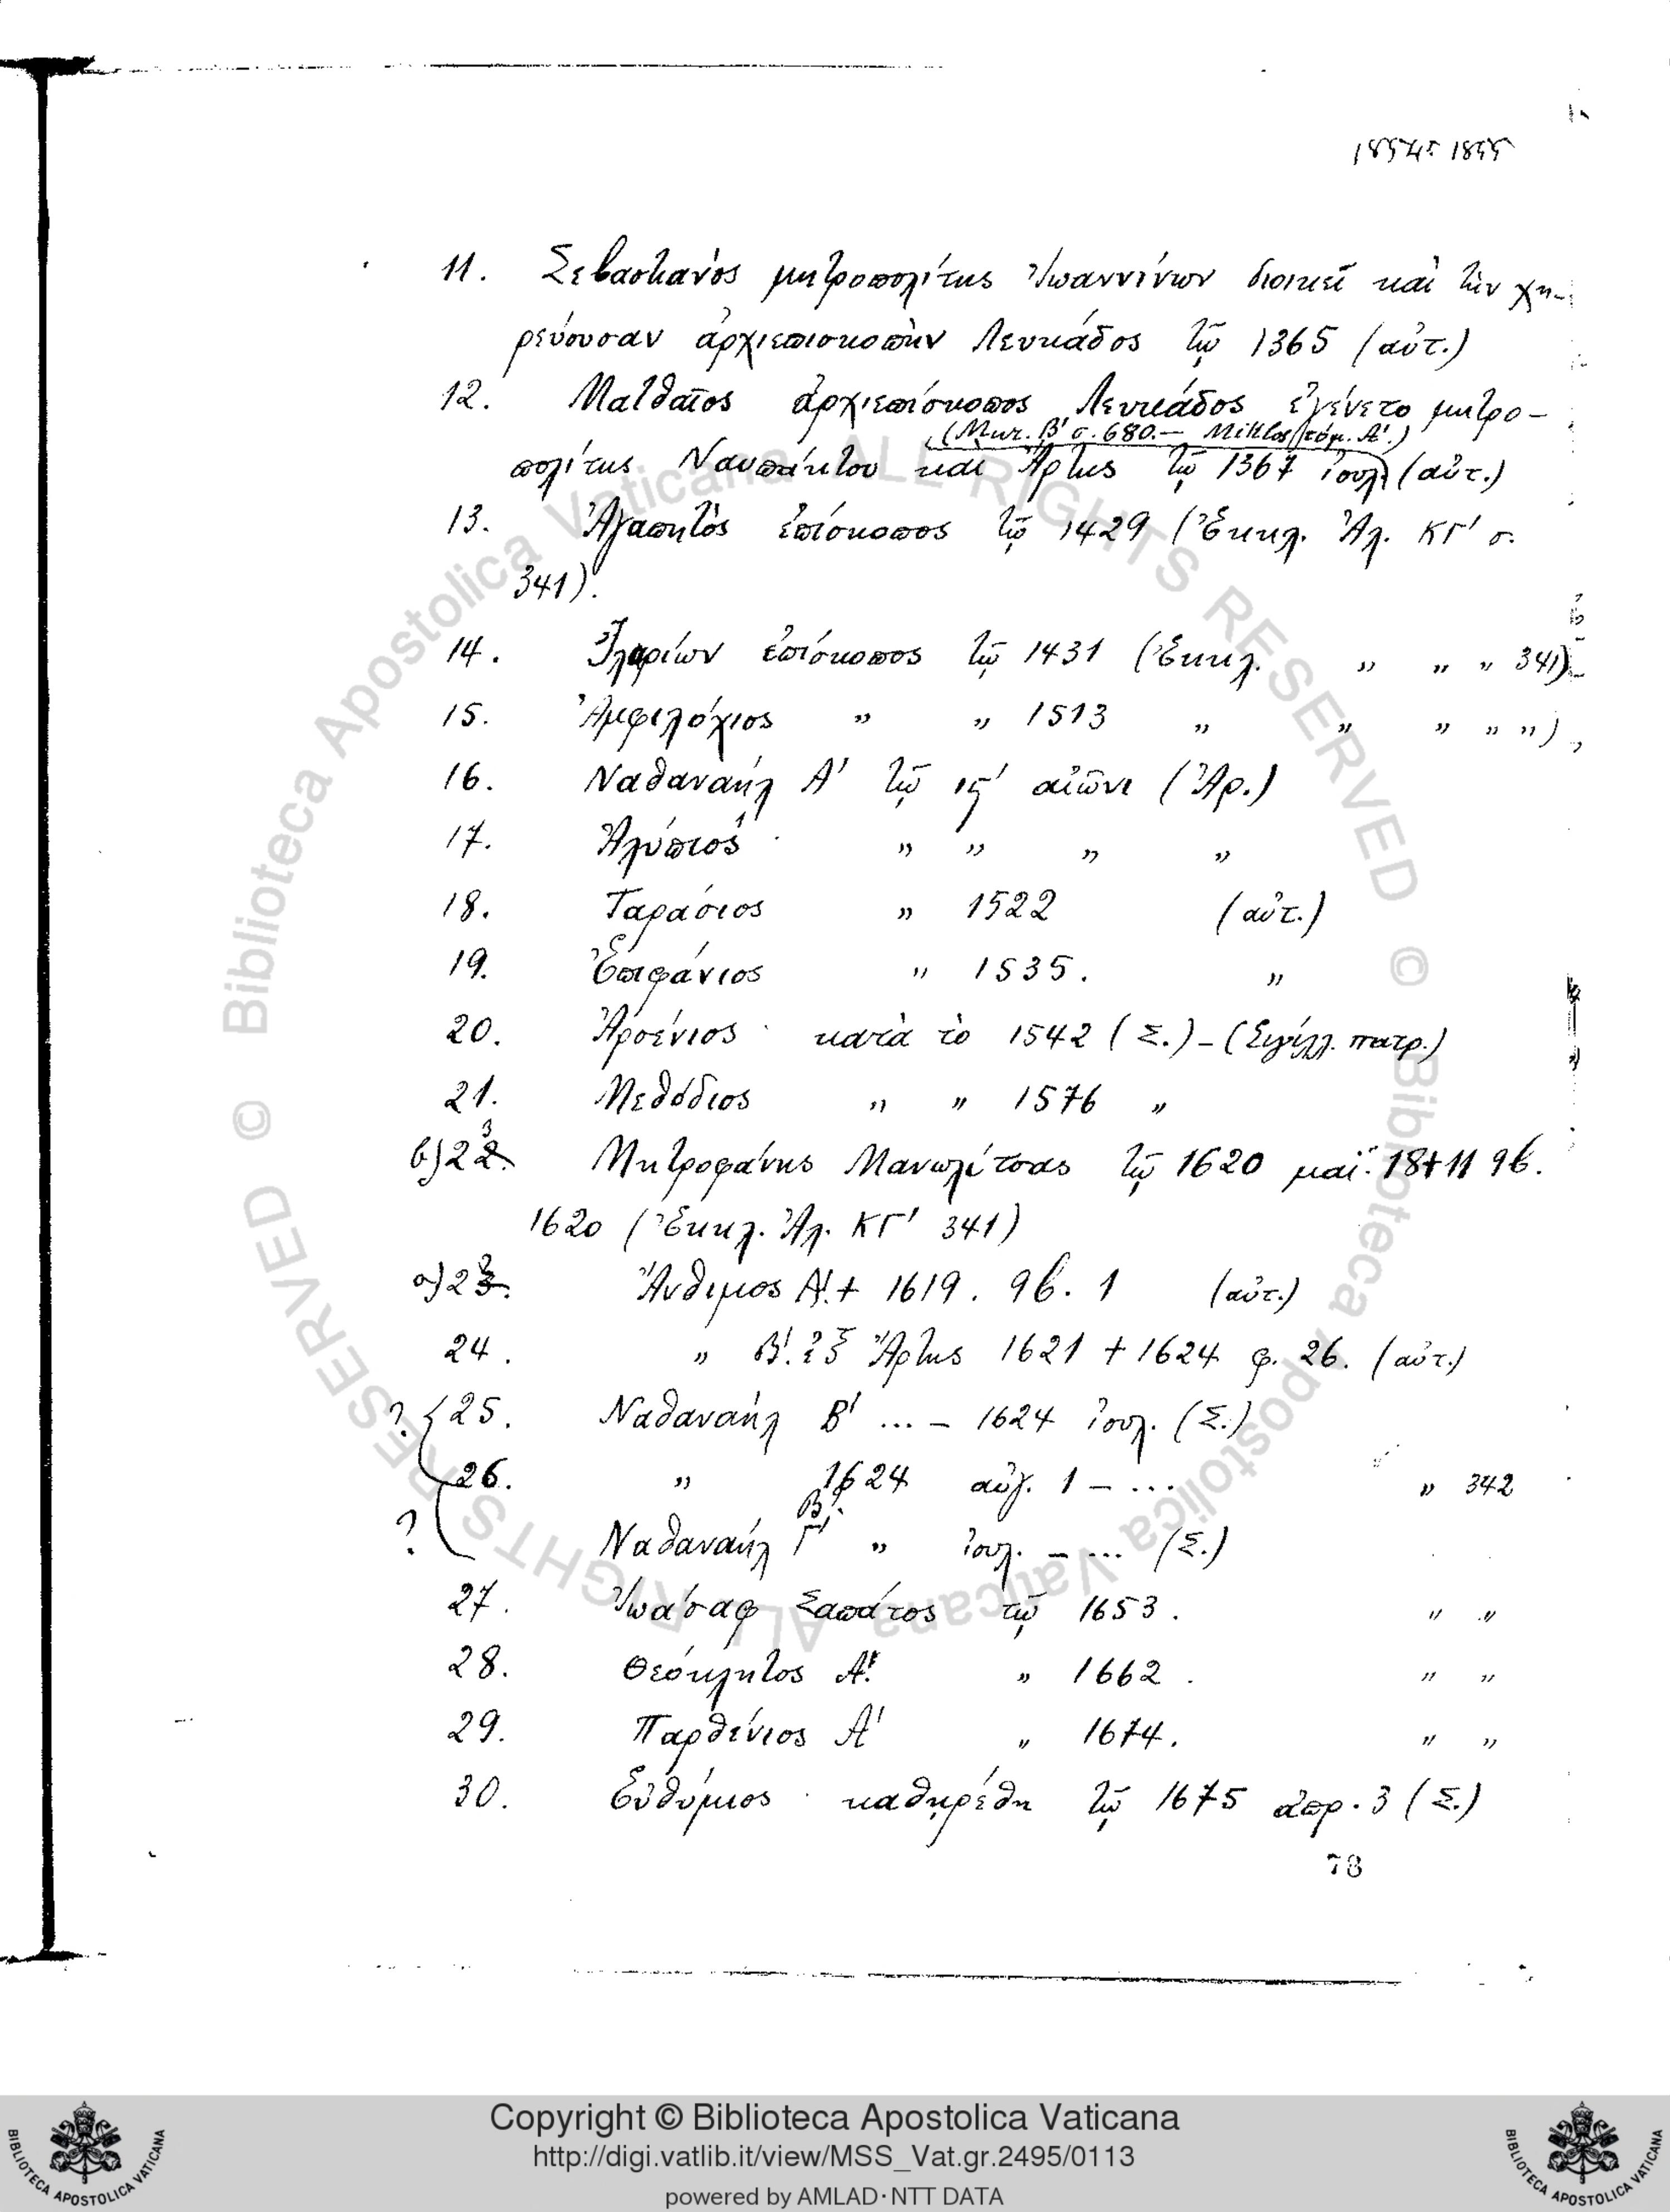 11. Σεβαστιανὸς μητροπολίτης Ἰωαννίνων διοικεῖ καὶ τὴν χη-
ρεύουσαν ἀρχιεπισκοπὴν Λευκάδος τῷ 1365 (αὐτ.)
12. Ματθαῖος ἀρχιεπίσκοπος Λευκάδος ἐγένετο μητρο-
(Μυζ. Β' σ. 680.— Miklos τόμ. Α'.)
πολίτης Ναυπάκτου καὶ Ἄρτης τῷ 1367 ἰουλ. (αὐτ.)
13. Ἀγαπητὸς ἐπίσκοπος τῷ 1429 (Ἐκκλ. Ἀλ. ΚΓ' σ.
341).
14. Ἱλαρίων ἐπίσκοπος τῷ 1431 (Ἐκκλ. „ „ „ 341)
15. Ἀμφιλόχιος „ „ 1513 „ „ „ „ „)
16. Ναθαναὴλ Α' τῷ ιϛ' αἰῶνι (Ἀρ.)
17. Ἀλύπιος „ „ „ „
18. Ταράσιος „ 1522 (αὐτ.)
19. Ἐπιφάνιος „ 1535. „
20. Ἀρσένιος κατὰ τὸ 1542 (Σ.) – (Σιγίλλ. πατρ.)
21. Μεθόδιος „ „ 1576 „
β) 23. Μητροφάνης Μανωλίτσας τῷ 1620 μαΐ. 18 + 11 9β.
1620 (Ἐκκλ. Ἀλ. ΚΓ' 341)
α) 22. Ἄνθιμος Α'. + 1619. 9β. 1 (αὐτ.)
24. „ Β'. ἐξ Ἄρτης 1621 + 1624 φ. 26. (αὐτ.)
? 25. Ναθαναὴλ Β' ... – 1624 ἰουλ. (Σ.)
26. „ 1624 αὐγ. 1 – ... „ 342
? Ναθαναὴλ Β' Γ' „ ἰουλ. – ... (Σ.)
27. Ἰωάσαφ Σαπάτος τῷ 1653. „ „
28. Θεόκλητος Α'. „ 1662. „ „
29. Παρθένιος Α' „ 1674. „ „
30. Εὐθύμιος καθῃρέθη τῷ 1675 ἀπρ. 3 (Σ.)
78
© Biblioteca Apostolica Vaticana ALL RIGHTS RESERVED
© Biblioteca Apostolica Vaticana ALL RIGHTS RESERVED
Copyright © Biblioteca Apostolica Vaticana
http://digi.vatlib.it/view/MSS_Vat.gr.2495/0113
powered by AMLAD·NTT DATA
BIBLIOTECA APOSTOLICA VATICANA
BIBLIOTECA APOSTOLICA VATICANA